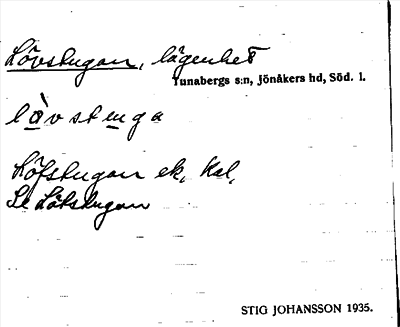 Lövstugan, lägenhet
Tunabergs s:n, Jönåkers hd, Söd. l.
Löfstugan ek, Kal,
Se Lötstugan
STIG JOHANSSON 1935.